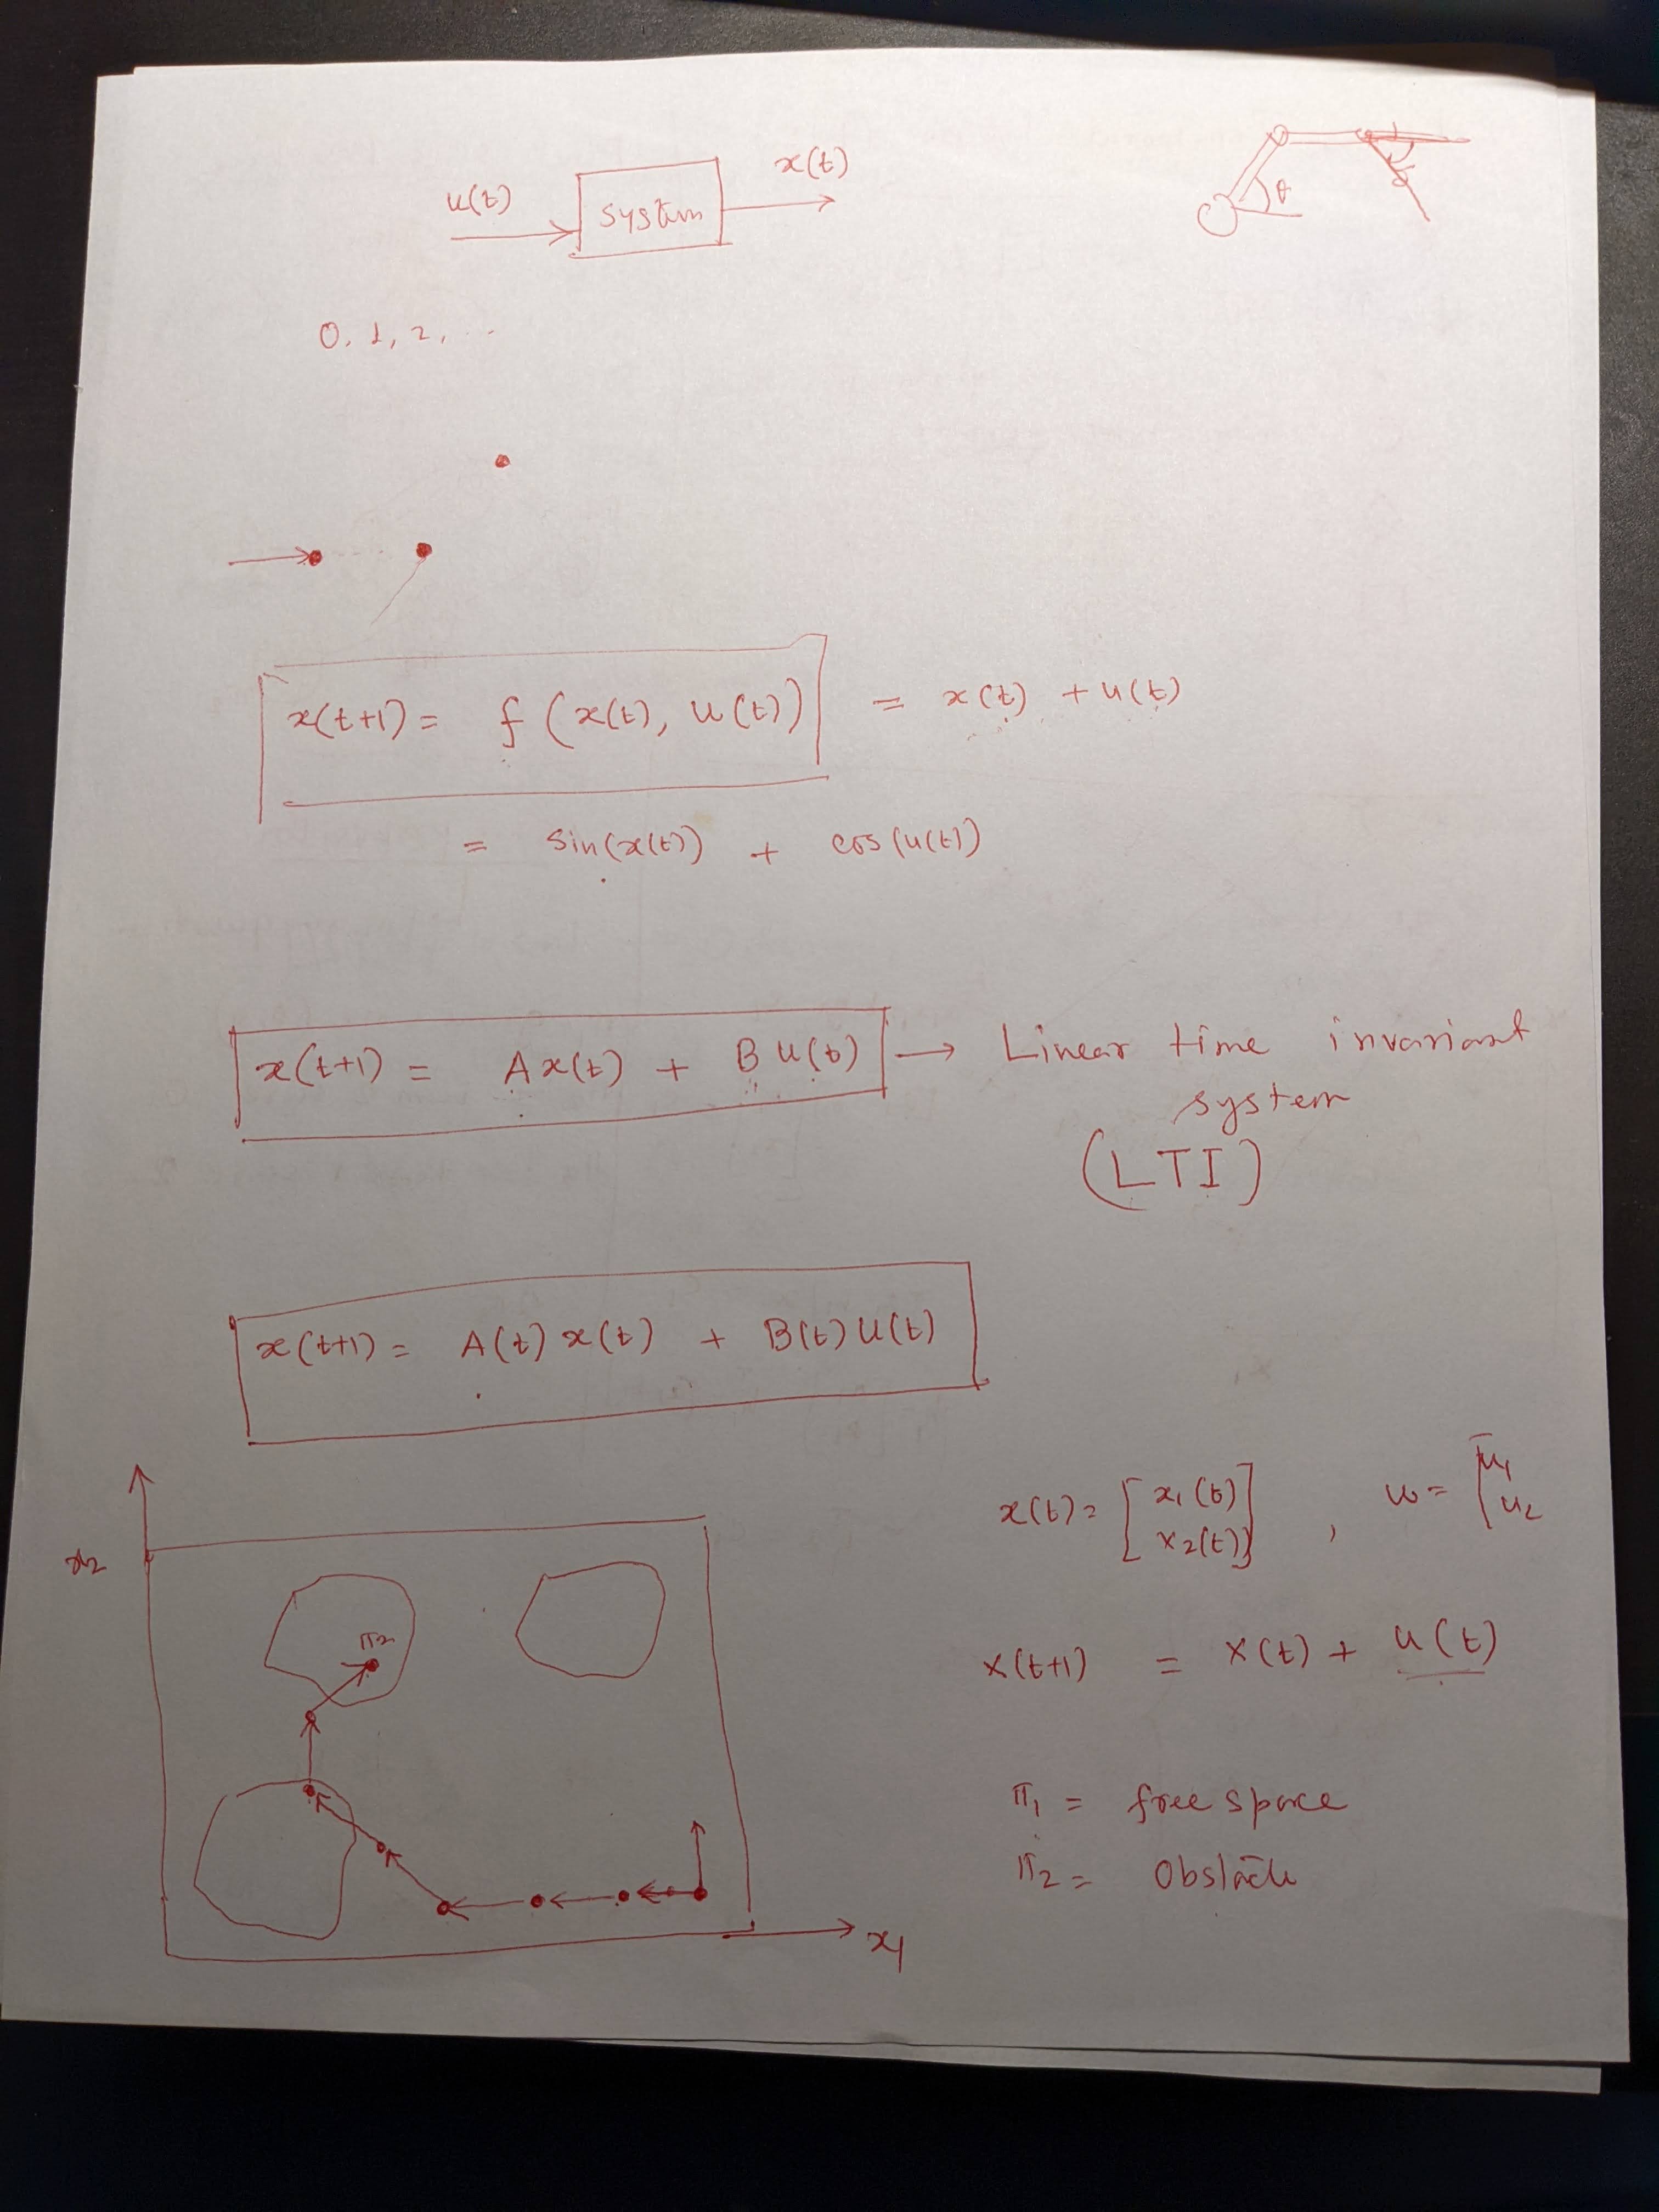 u(t) system x(t)
θ
0, 1, 2, ...
x(t+1) = f (x(t), u(t)) = x(t) + u(t)
= sin(x(t)) + cos(u(t))
x(t+1) = A x(t) + B u(t) → Linear time invariant
system
(LTI)
x(t+1) = A(t) x(t) + B(t) u(t)
x(t) = [x₁(t)
x₂(t)] , u = [u₁
u₂
x₂
π₂
x(t+1) = x(t) + u(t)
π₁ = free space
π₂ = Obstacle
x₁